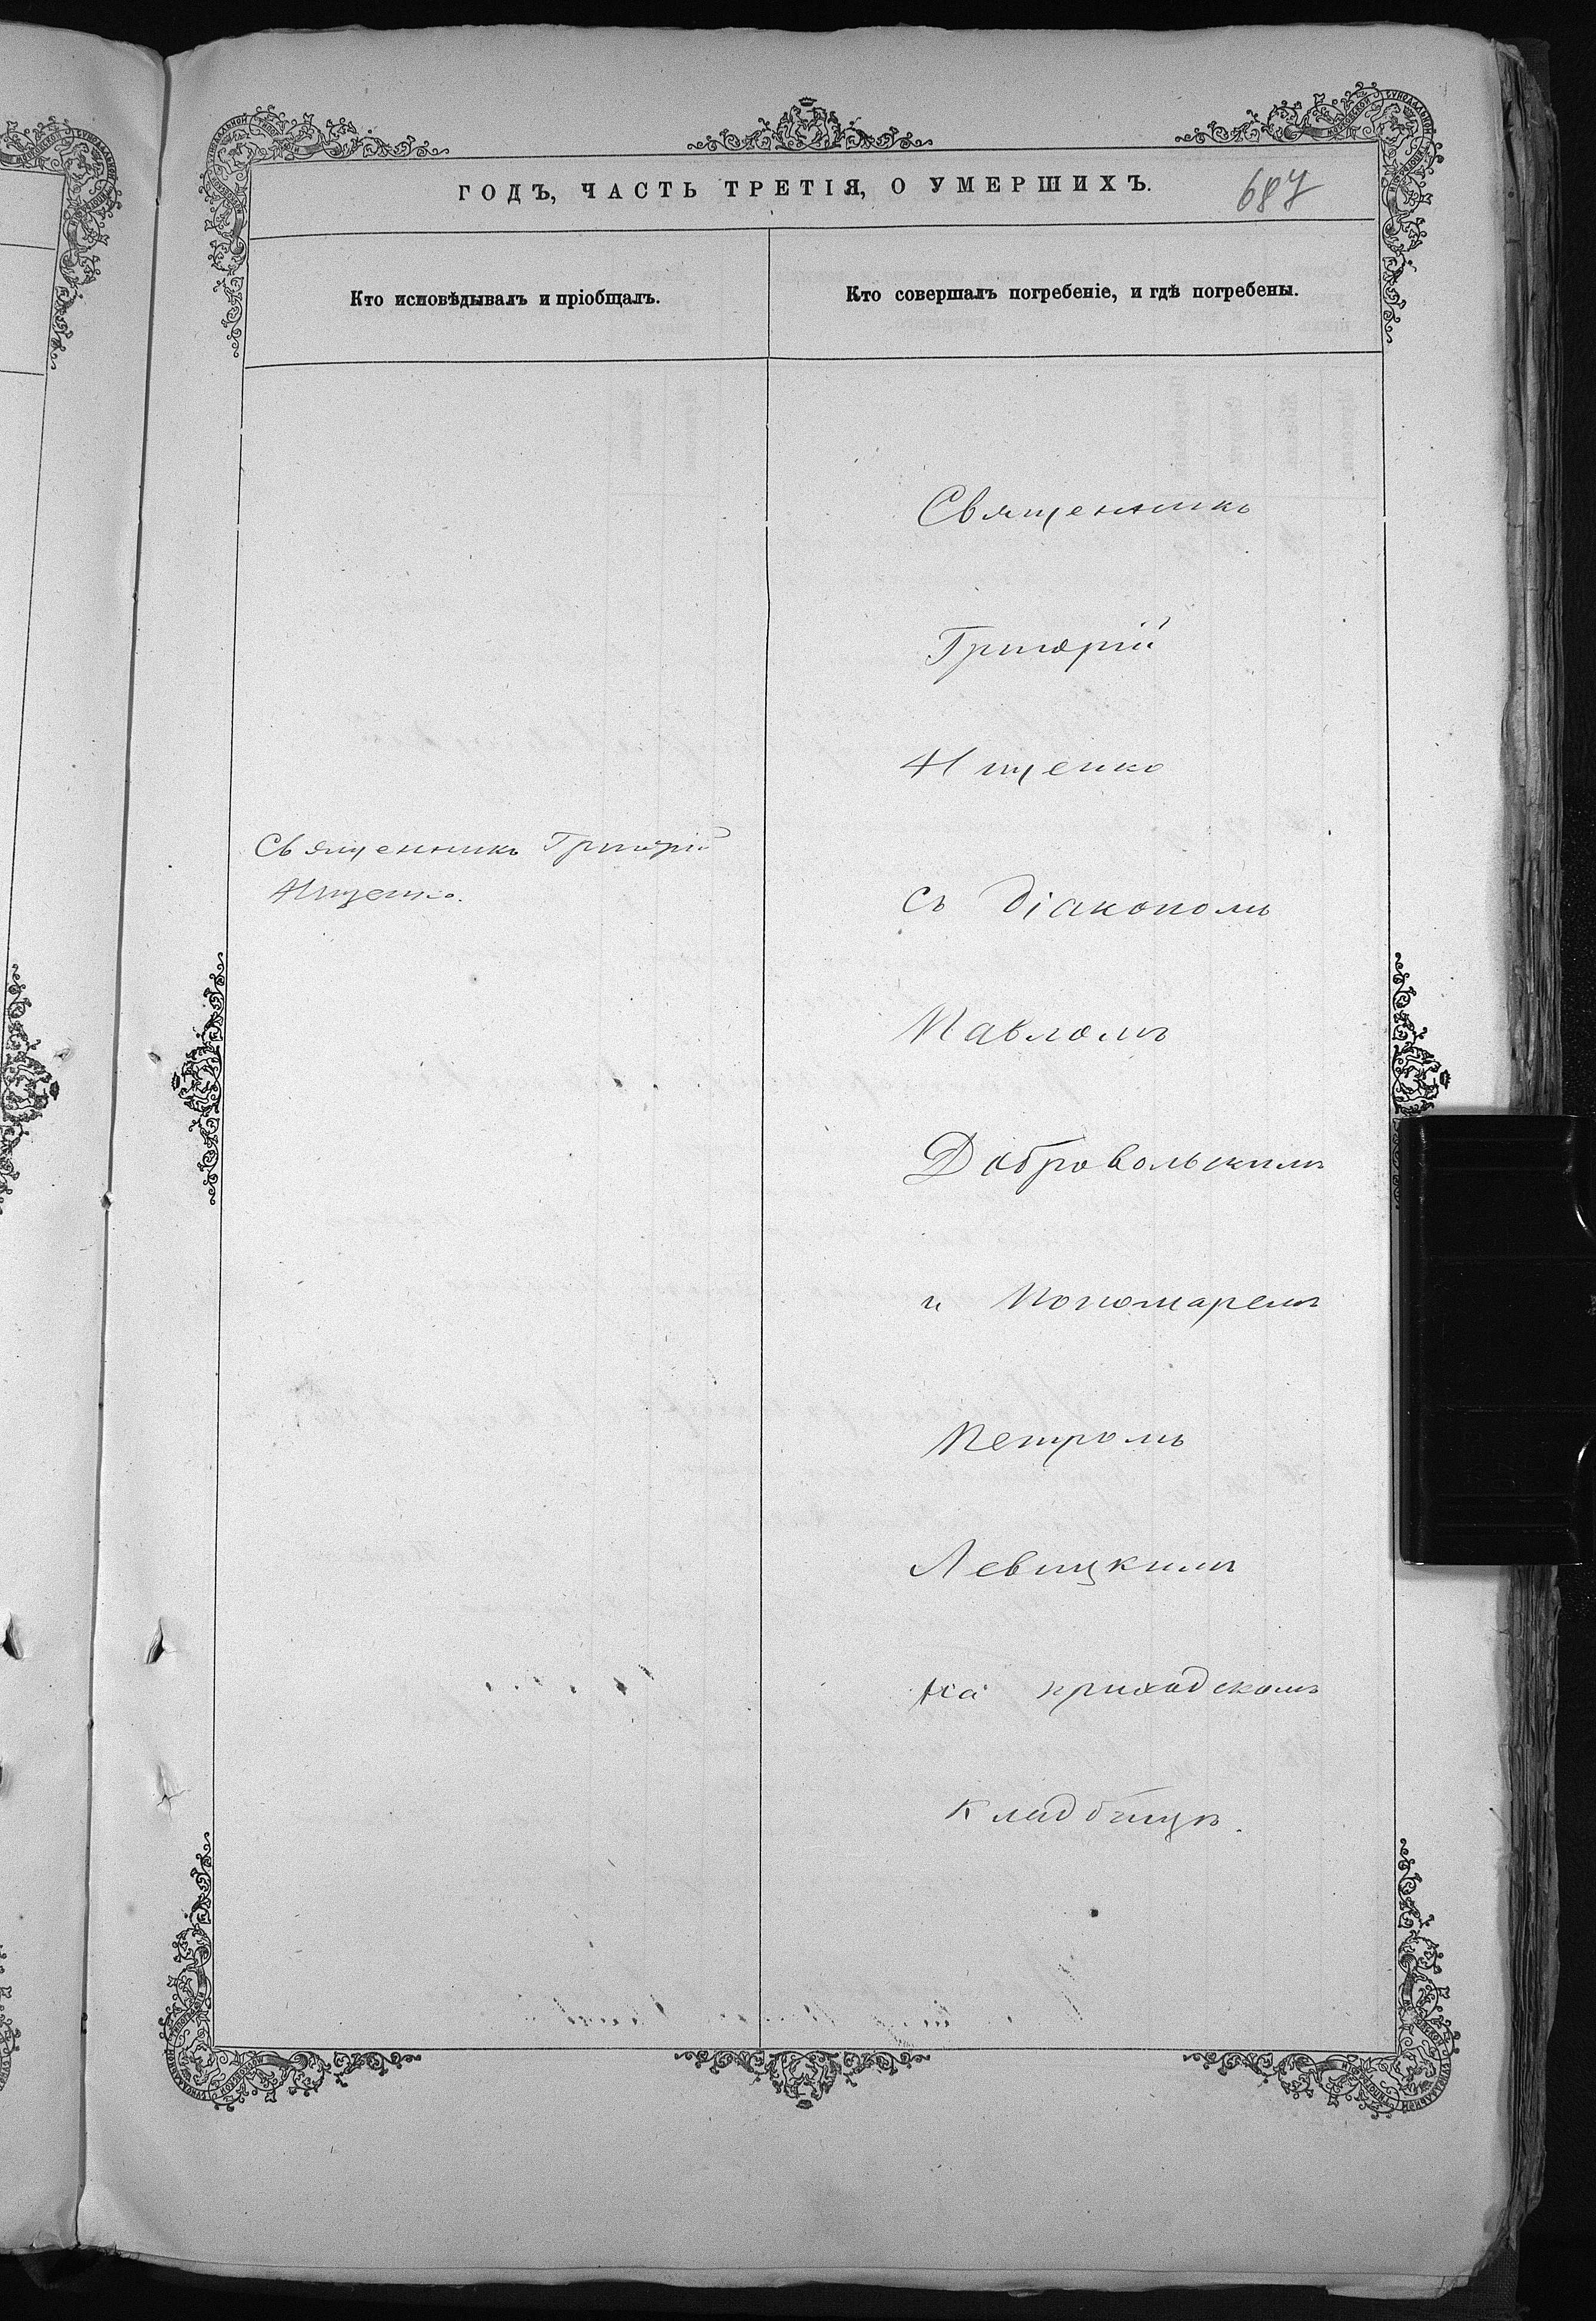 ГОДЪ, ЧАСТЬ ТРЕТІЯ, О УМЕРШИХЪ.
687
Кто исповѣдывалъ и пріобщалъ.
Кто совершалъ погребеніе, и гдѣ погребены.
Священникъ Григорій
Ищенко.
Священникъ
Григорій
Ищенко
съ діакономъ
Павломъ
Добровольскимъ
и пономаремъ
Петромъ
Левицкимъ
на приходскомъ
кладбищѣ.